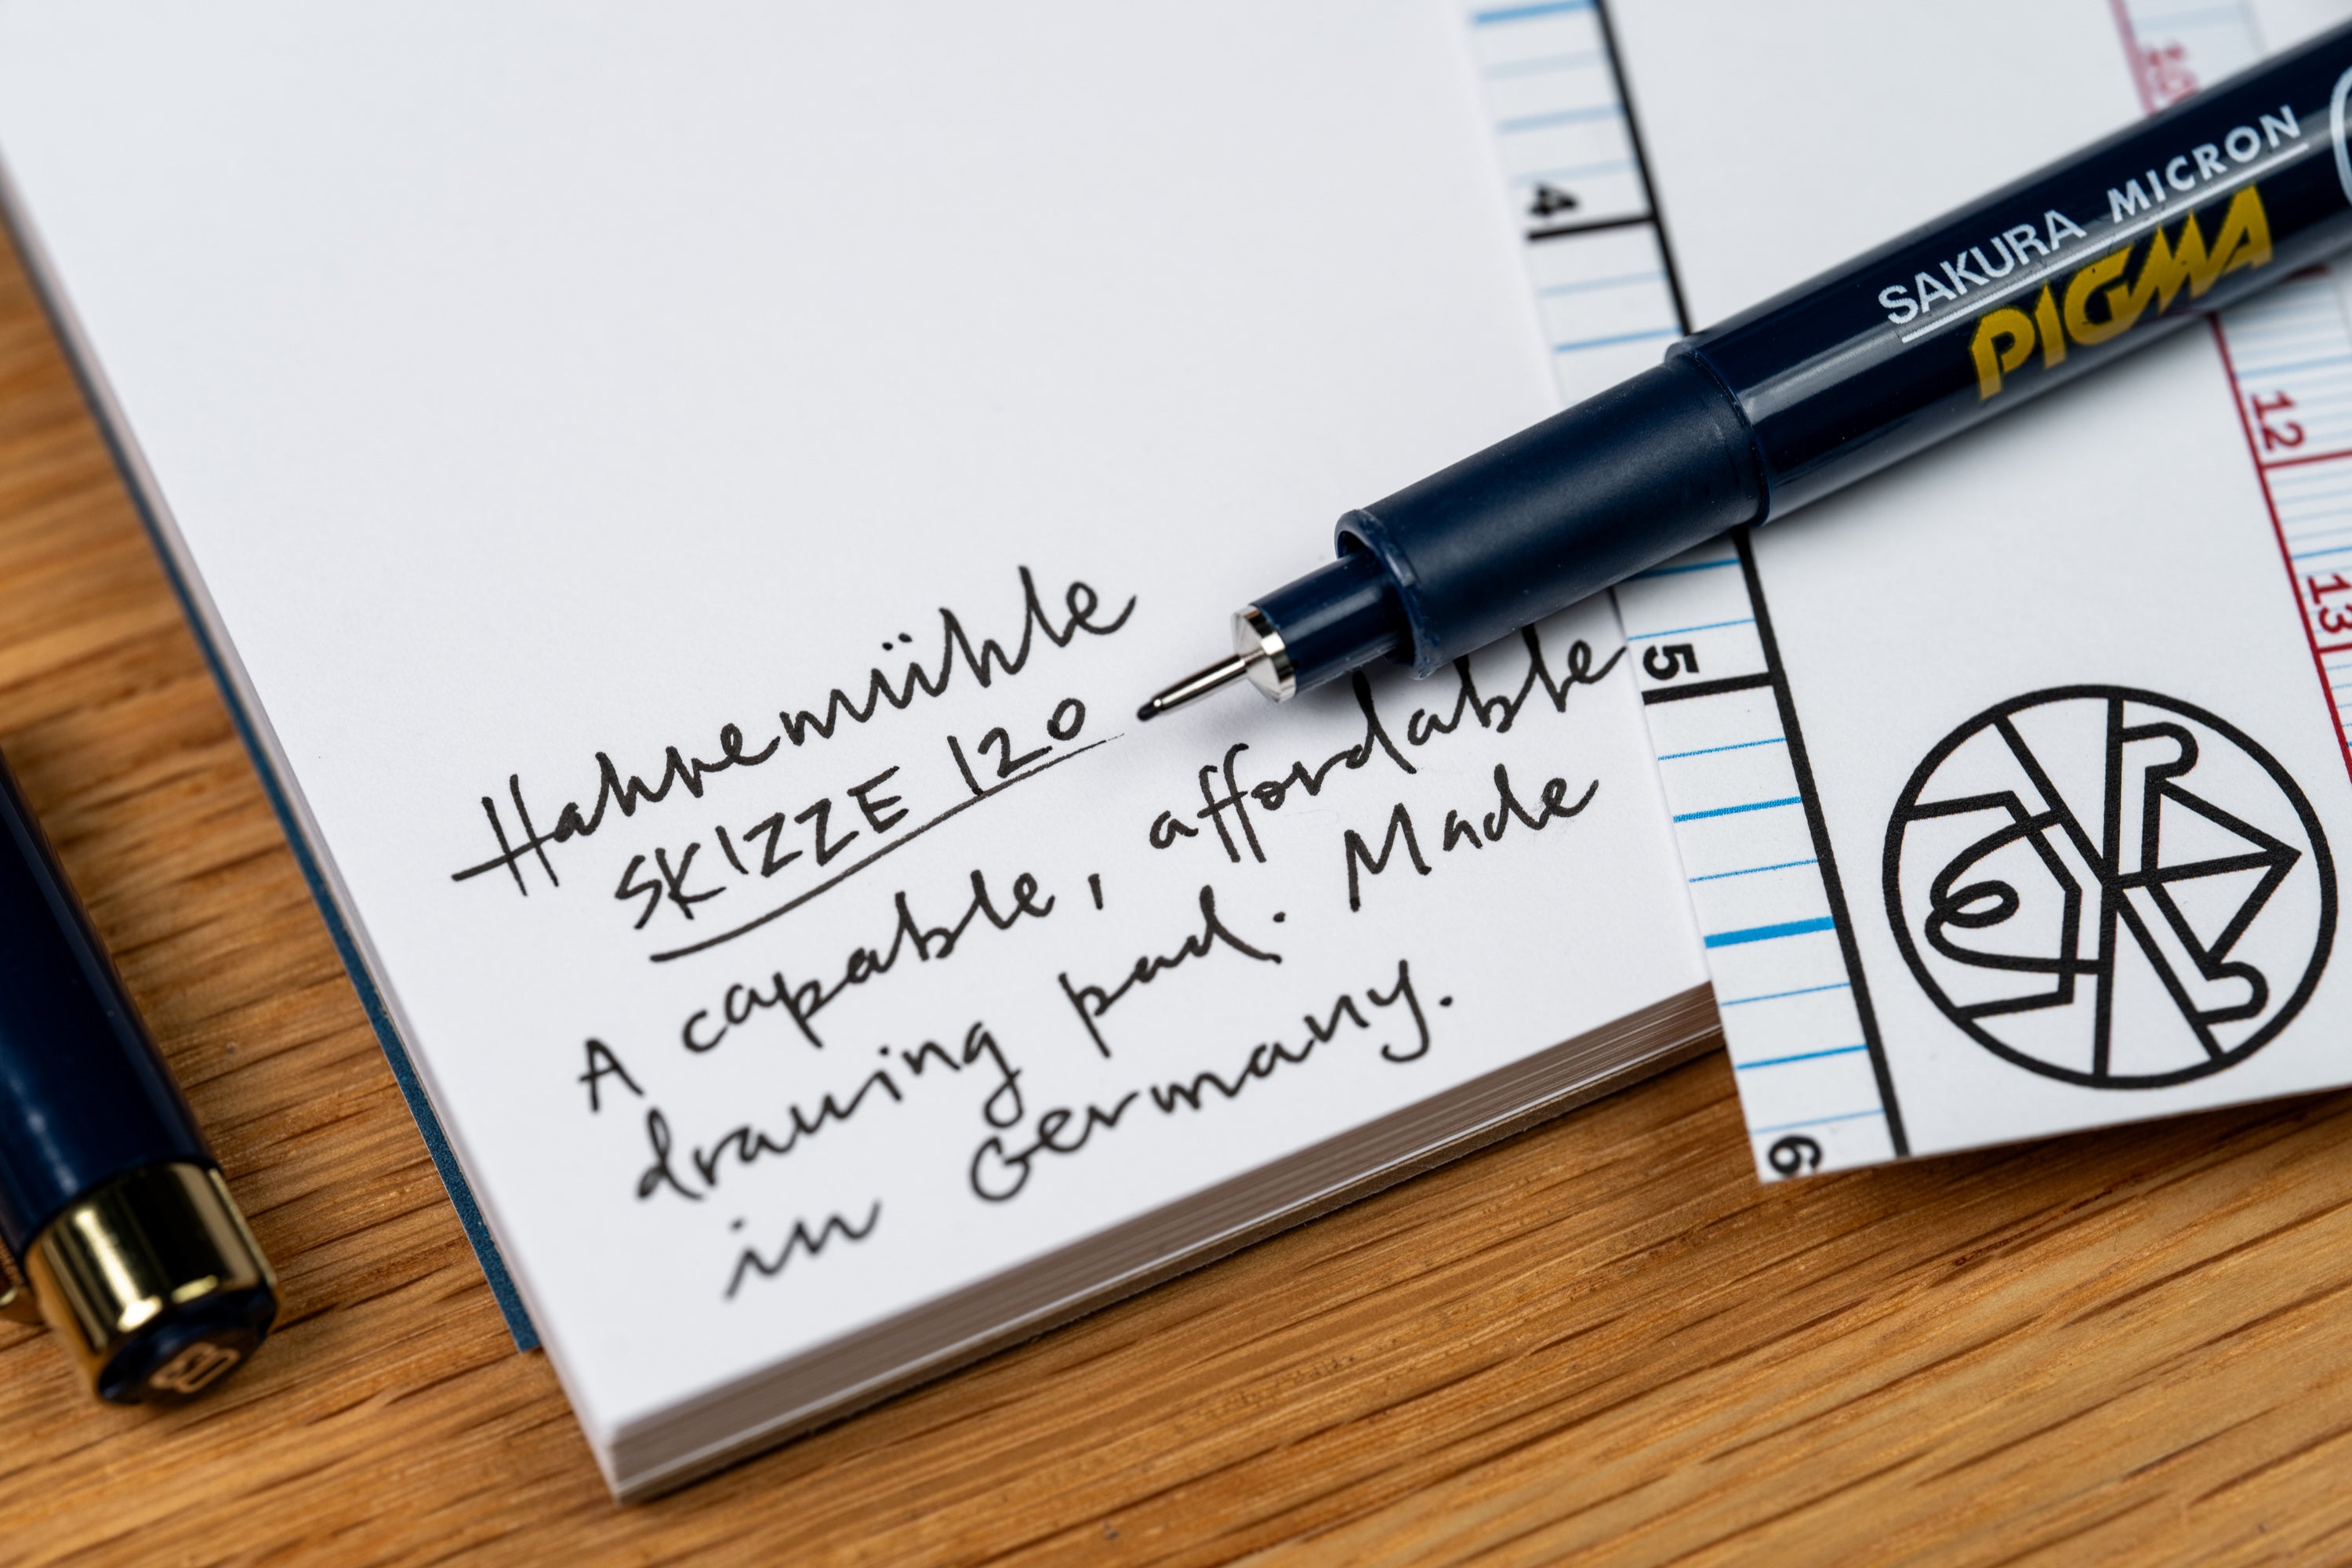 Hahnemühle
SKIZZE 120
A capable, affordable
drawing pad. Made
in Germany.
SAKURA MICRON
PIGMA
4
5
6
12
13